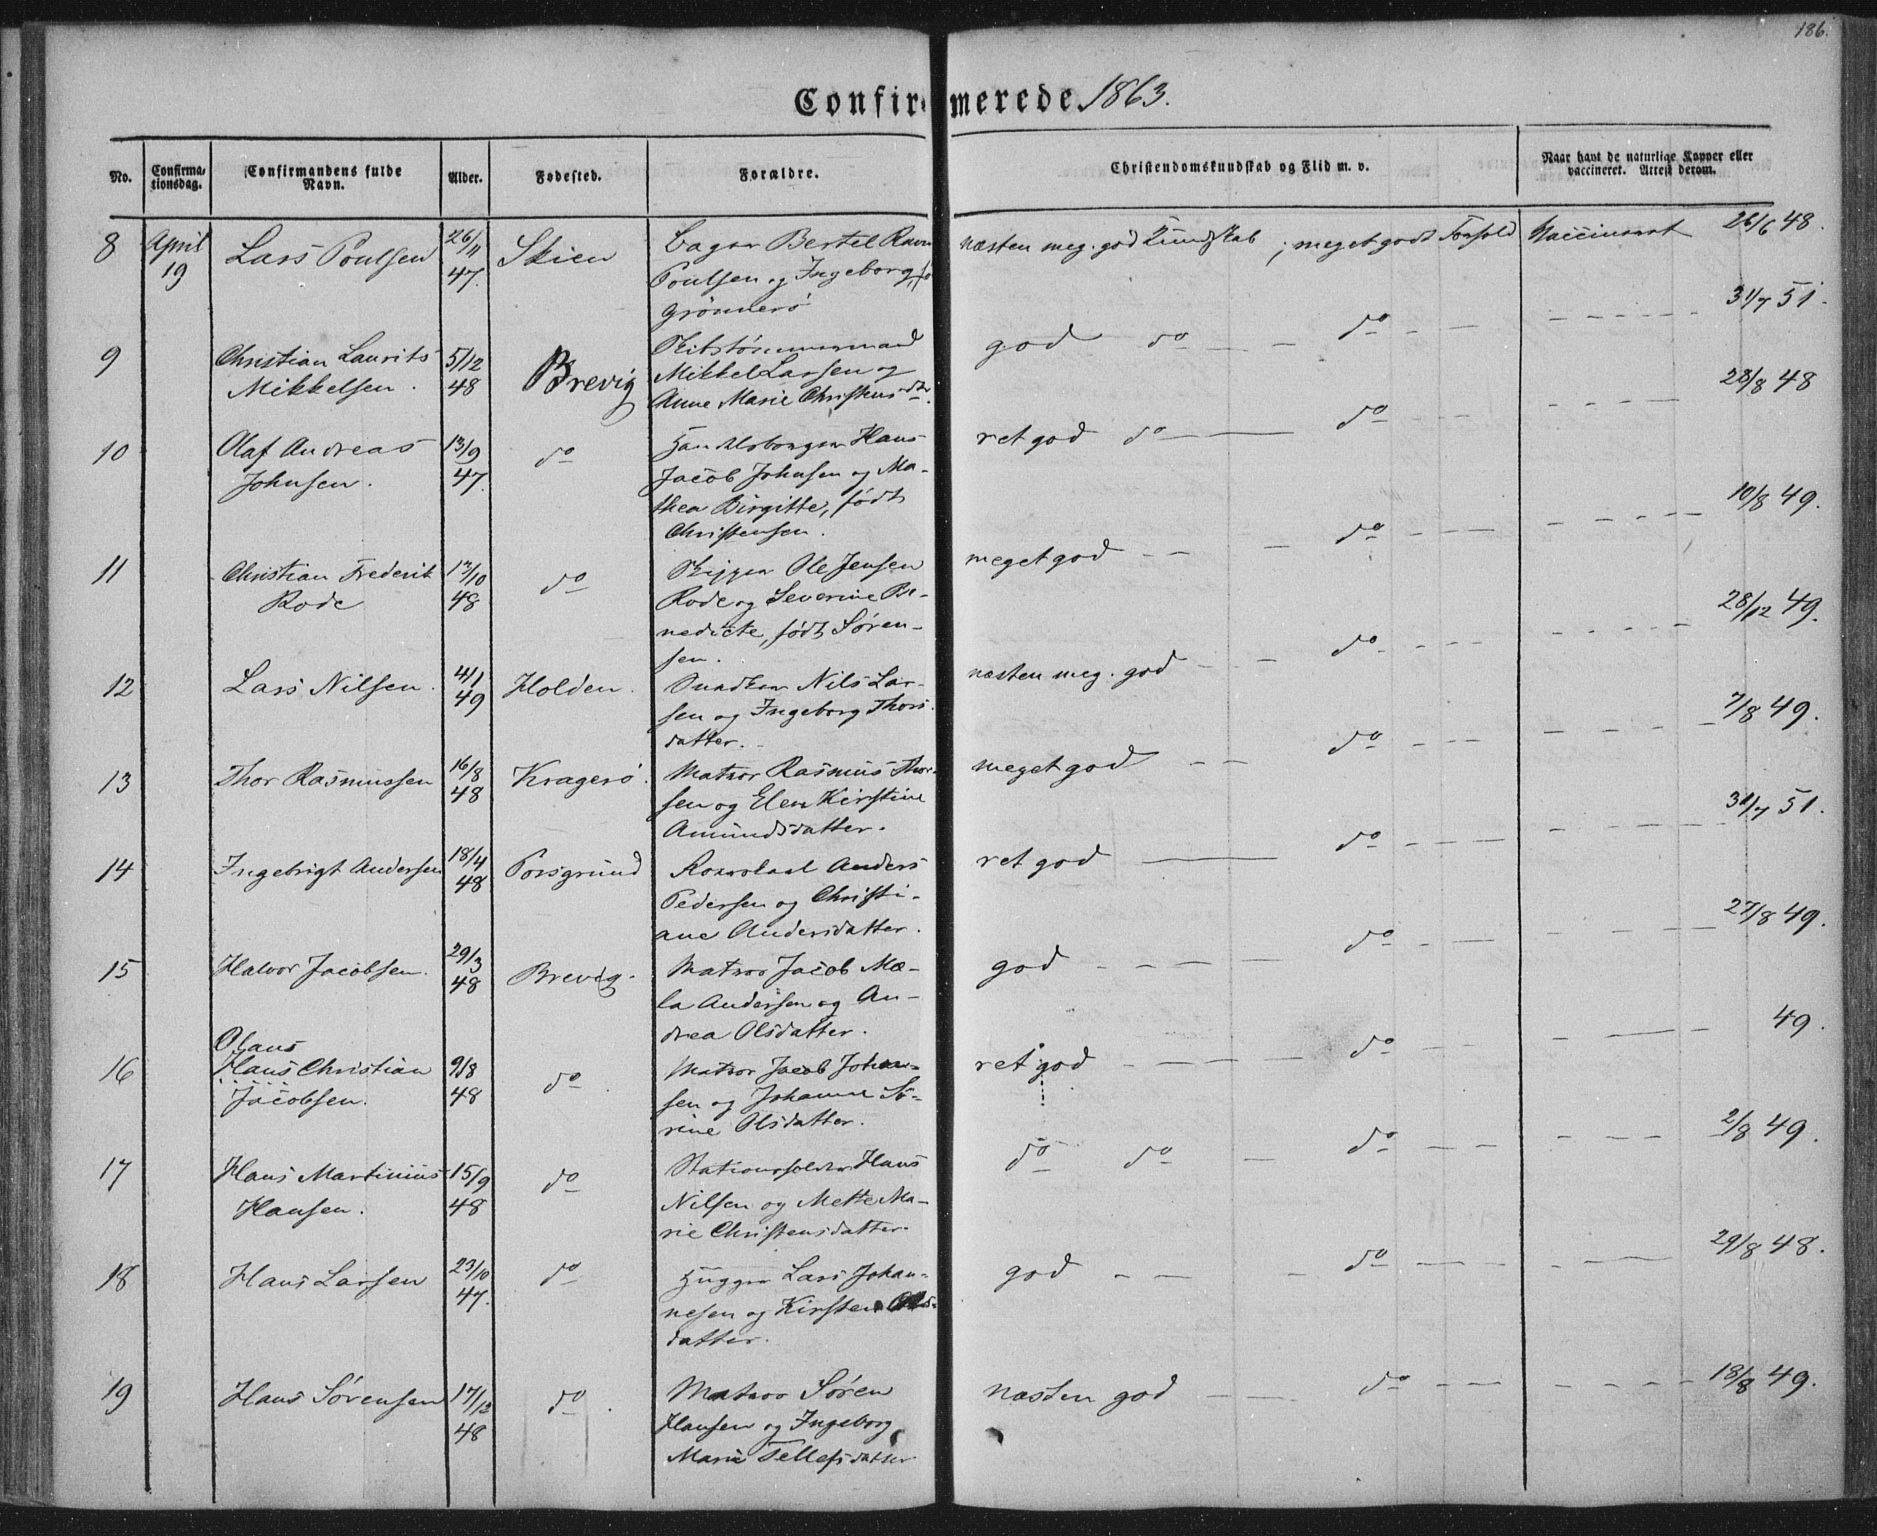 186.
Confirmerede 1863.
No. Confirma-tionsdag. Confirmandens fulde Navn. Alder. Fødested. Forældre. Christendomskundskab og Flid m. v. Naar havt de naturlige Kopper eller vaccineret. Attest derom.
8 April 19 Lars Poulsen 26/11 47. Skien Bager Bertel Ravn næsten meg. god Kundskab ; meget godt Forhold Vaccineret 26/6 48.
Poulsen og Ingeborg, f.
Grönnerö
9 Christian Laurits 5/12 48 Brevig Skibstömmermand god do do 31/7 51.
Mikkelsen. Mikkel Larsen og
Anne Marie Christensdtr.
10 Olaf Andreas 13/9 47. do Handelsborger Hans ret god do do 28/8 48
Johnsen. Jacob Johnsen og Ma-
thea Birgitte, födt
Christensen.
11 Christian Frederik 12/10 48 do Skipper Ole Jensen meget god do 10/8 49.
Rode Rode og Severine Be-
nedicte, födt Sören-
sen.
12 Lars Nilsen. 4/1 49 Holden. Snedker Nils Lar- næsten meg. god do 28/12 49.
sen og Ingeborg Thors-
datter.
13 Thor Rasmussen 16/8 48 Kragerö. Matros Rasmus Thor- meget god do 7/8 49.
sen og Elen Kirstine
Amundsdatter.
14 Ingebrigt Andersen 18/4 48 Porsgrund Anders ret god do 31/7 51.
Pedersen og Christi-
ane Andersdatter.
15 Halvor Jacobsen. 29/3 48 Brevig. Matros Jacob Mæ- god do 27/8 49.
la Andersen og An-
drea Olsdatter.
Olaus
16 Hans Christian 9/8 48 do. Matros Jacob Johan- ret god do 49.
Jacobsen. sen og Johanne Sö-
rine Olsdatter.
17 Hans Martinius 15/9 48 do Stationsholder Hans do do do 2/8 49.
Hansen. Nilsen og Mette Ma-
rie Christensdatter.
18 Hans Larsen 23/10 47. do Hugger Lars Johan- god do 29/8 48.
nesen og Kirsten
datter.
19 Hans Sörensen 17/12 48 do. Matros Sören næsten god do 18/8 49.
Hansen og Ingeborg
Marie Tellefsdatter